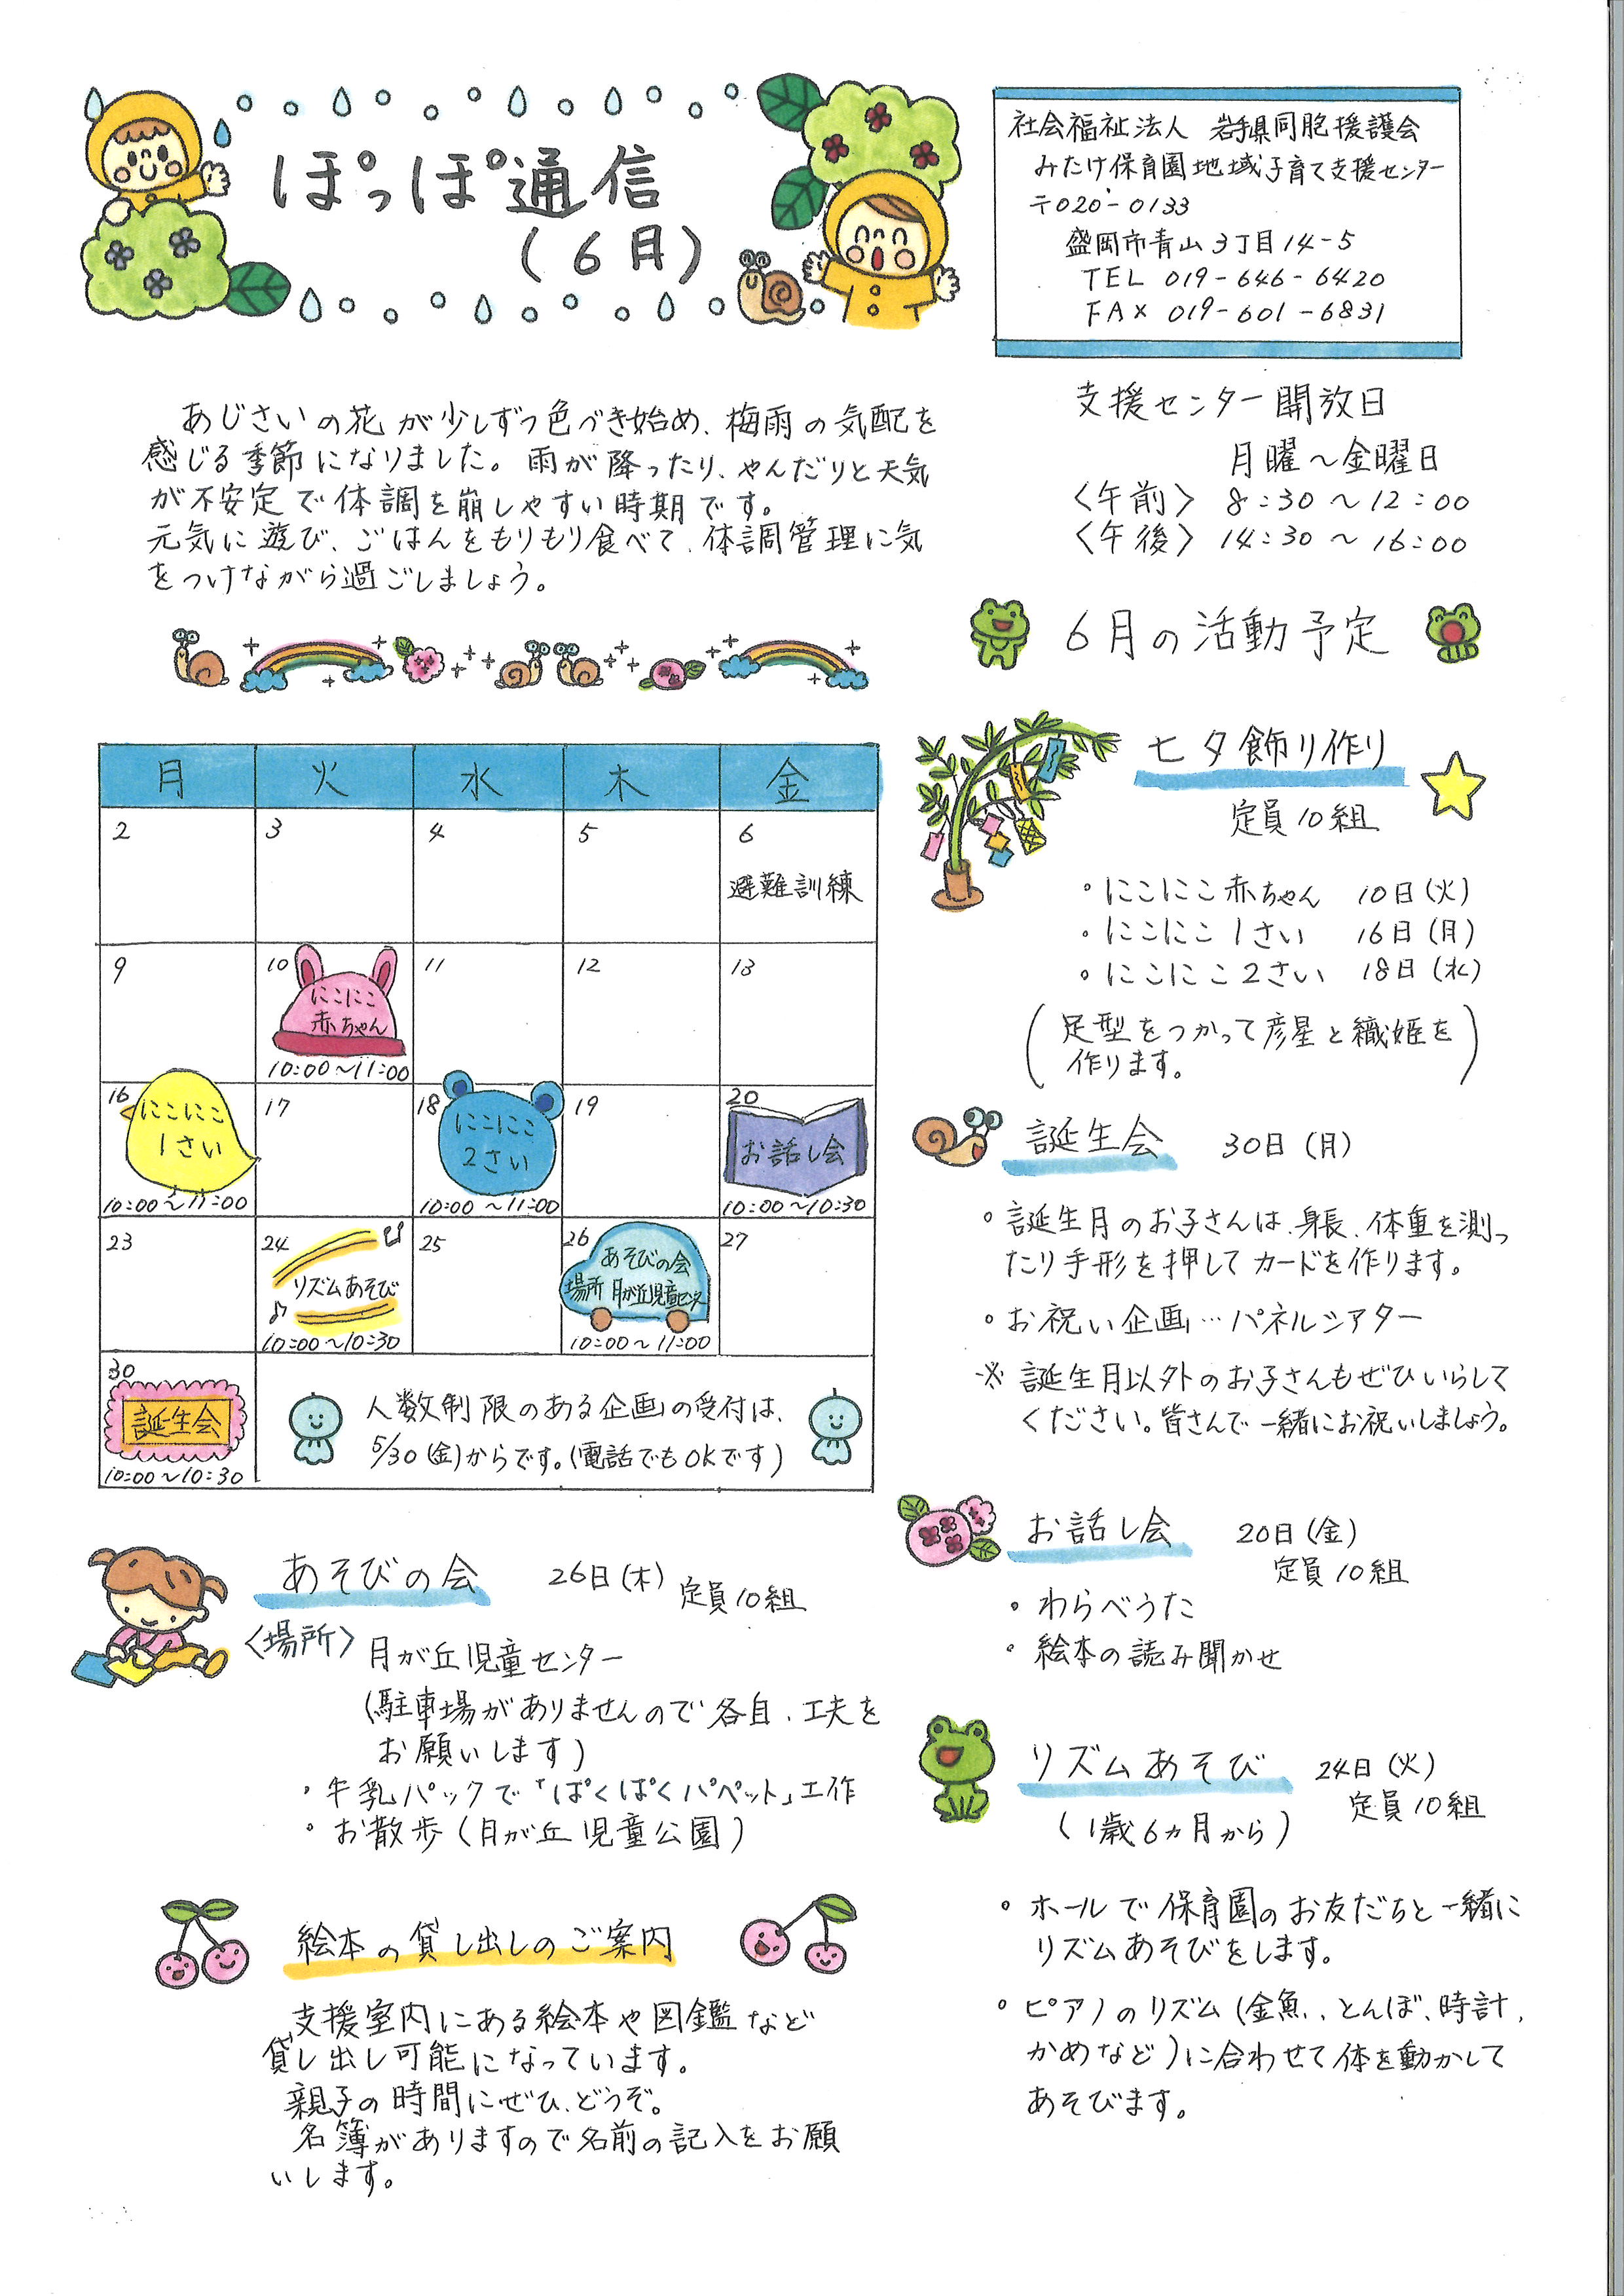 ぽっぽ通信
(6月)
社会福祉法人 岩手県同胞援護会
みたけ保育園地域子育て支援センター
〒020-0133
盛岡市青山3丁目14-5
TEL 019-646-6420
FAX 019-601-6831
あじさいの花が少しずつ色づき始め、梅雨の気配を
感じる季節になりました。雨が降ったり、やんだりと天気
が不安定で体調を崩しやすい時期です。
元気に遊び、ごはんをもりもり食べて、体調管理に気
をつけながら過ごしましょう。
支援センター開放日
月曜～金曜日
〈午前〉 8:30～12:00
〈午後〉 14:30～16:00
6月の活動予定
月 火 水 木 金
2 3 4 5 6
避難訓練
9 10 11 12 13
にこにこ
赤ちゃん
10:00～11:00
16 17 18 19 20
にこにこ
1さい
10:00～11:00
にこにこ
2さい
10:00～11:00
お話し会
10:00～10:30
23 24 25 26 27
リズムあそび
10:00～10:30
あそびの会
場所 月が丘児童センター
10:00～11:00
30
誕生会
10:00～10:30
人数制限のある企画の受付は、
5/30(金)からです。(電話でもOKです)
七夕飾り作り
定員10組
・にこにこ赤ちゃん 10日(火)
・にこにこ1さい 16日(月)
・にこにこ2さい 18日(水)
(足型をつかって彦星と織姫を
作ります。)
誕生会 30日(月)
・誕生月のお子さんは、身長、体重を測っ
たり手形を押してカードを作ります。
・お祝い企画…パネルシアター
※誕生月以外のお子さんもぜひいらして
ください。皆さんで一緒にお祝いしましょう。
お話し会 20日(金)
定員10組
・わらべうた
・絵本の読み聞かせ
リズムあそび 24日(火)
定員10組
(1歳6ヵ月から)
・ホールで保育園のお友だちと一緒に
リズムあそびをします。
・ピアノのリズム(金魚、とんぼ、時計、
かめなど)に合わせて体を動かして
あそびます。
あそびの会 26日(木) 定員10組
〈場所〉月が丘児童センター
(駐車場がありませんので各自、工夫を
お願いします)
・牛乳パックで「ぱくぱくパペット」工作
・お散歩(月が丘児童公園)
絵本の貸し出しのご案内
支援室内にある絵本や図鑑など
貸し出し可能になっています。
親子の時間にぜひ、どうぞ。
名簿がありますので名前の記入をお願
いします。